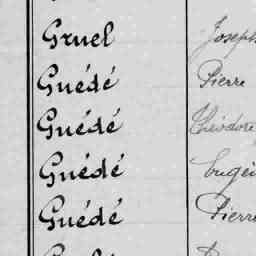 Gruel Joseph
Guédé Pierre
Guédé Théodore
Guédé
Guédé Pierre